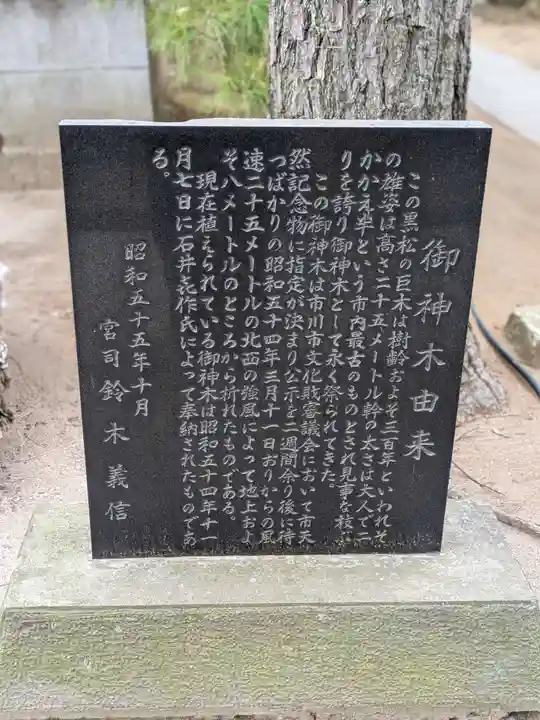 御神木由来
この黒松の巨木は樹齢およそ三百年といわれそ
の雄姿は高さ二十五メートル幹の太さは大人で二
かかえ半という市内最古のものとされ見事な枝ぶ
りを誇り御神木として永く祭られてきた。
この御神木は市川市文化財審議会において市天
然記念物に指定が決まり公示を二週間余り後に待
つばかりの昭和五十四年三月十一日おりからの風
速二十五メートルの北西の強風によって地上およ
そ八メートルのところから折れたものである。
現在植えられている御神木は昭和五十四年十一
月七日に石井㐂作氏によって奉納されたものであ
る。
昭和五十五年十月
宮司鈴木義信